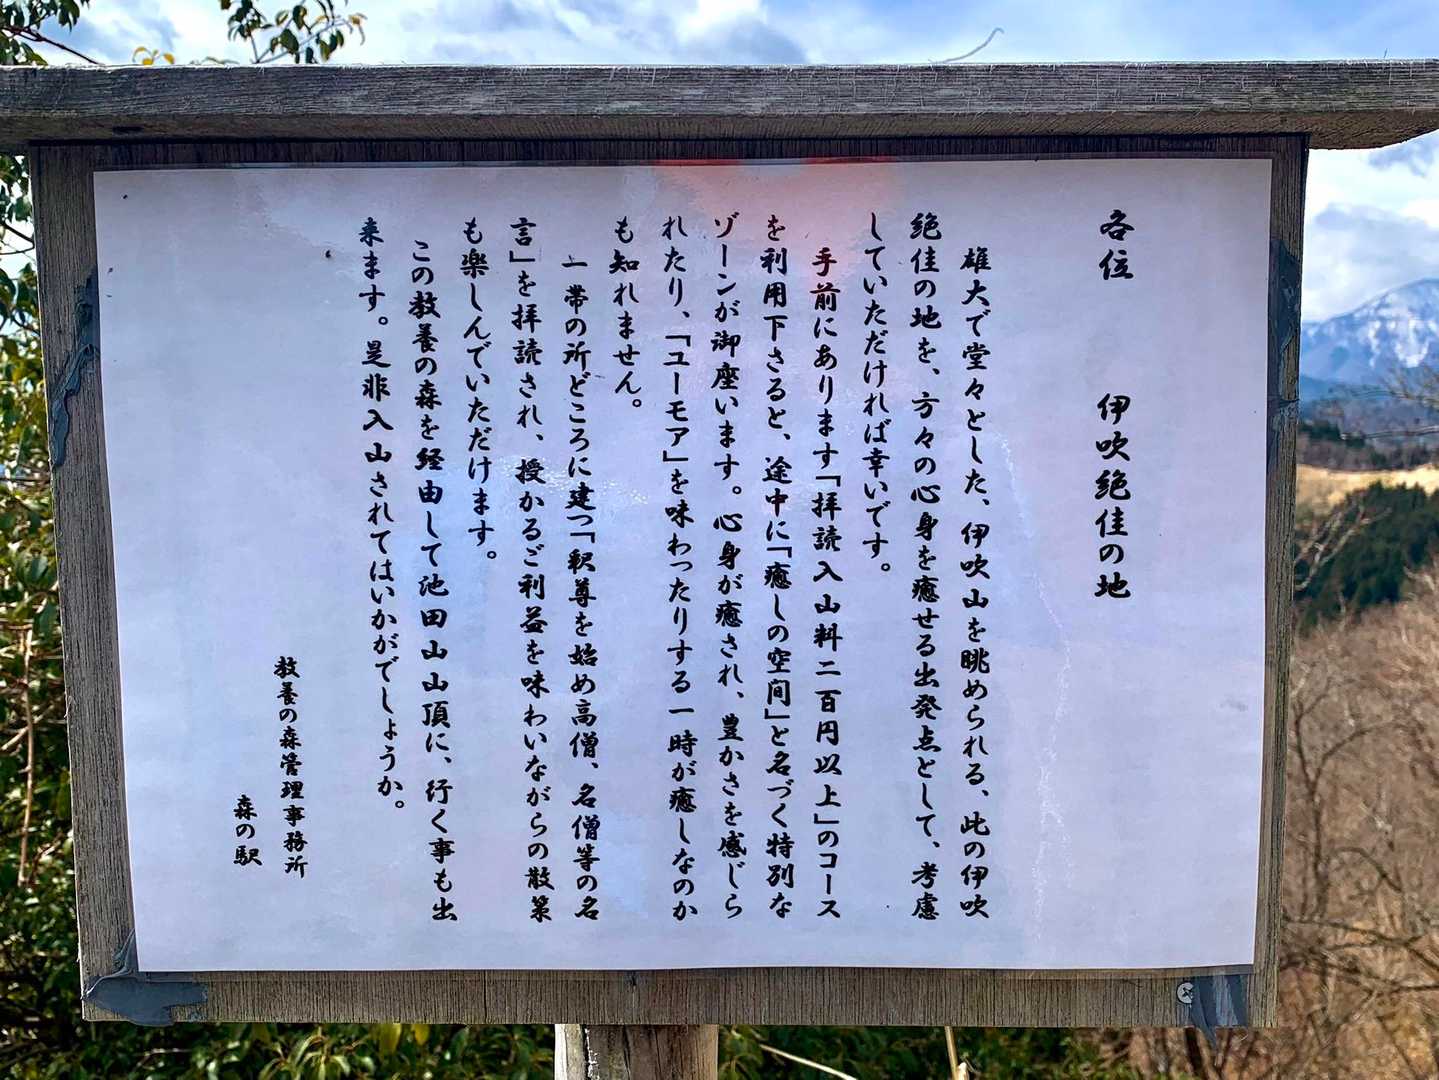 各位　伊吹絶佳の地
雄大で堂々とした、伊吹山を眺められる、此の伊吹
絶佳の地を、方々の心身を癒せる出発点として、考慮
していただければ幸いです。
手前にあります「拝読入山料二百円以上」のコース
を利用下さると、途中に「癒しの空間」と名づく特別な
ゾーンが御座います。心身が癒され、豊かさを感じら
れたり、「ユーモア」を味わったりする一時が癒しなのか
も知れません。
一帯の所どころに建つ「釈尊を始め高僧、名僧等の名
言」を拝読され、授かるご利益を味わいながらの散策
も楽しんでいただけます。
この教養の森を経由して池田山山頂に、行く事も出
来ます。是非入山されてはいかがでしょうか。
教養の森管理事務所
森の駅